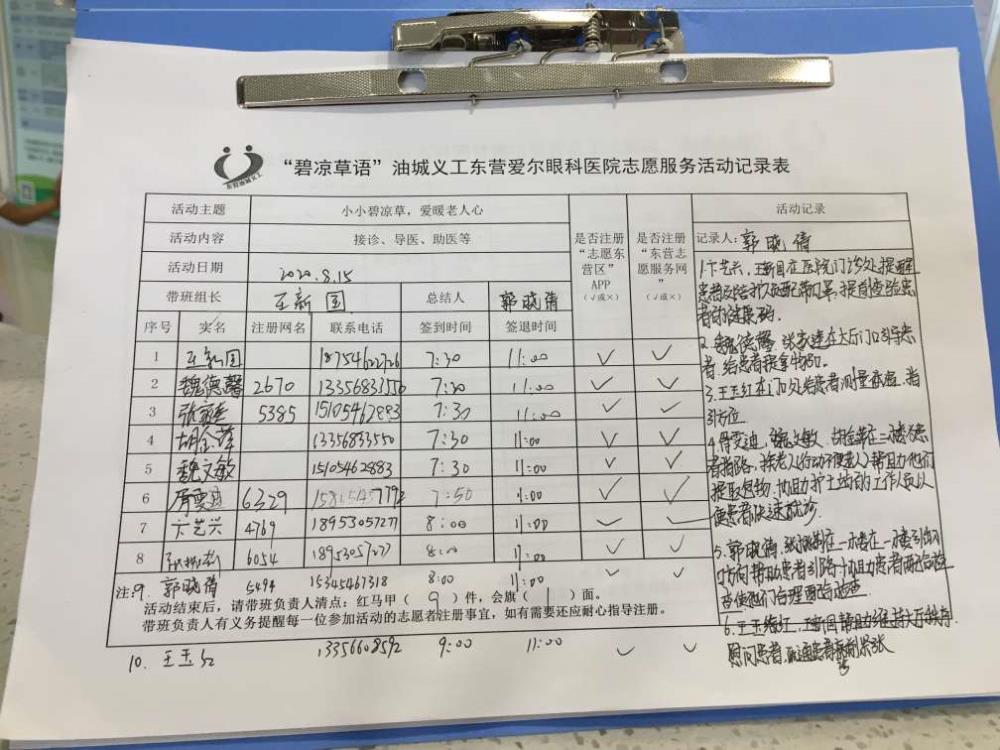 东营油城义工
“碧凉草语”油城义工东营爱尔眼科医院志愿服务活动记录表
活动主题 小小碧凉草，爱暖老人心
活动内容 接诊、导医、助医等
活动日期 2020.8.15
带班组长 王新国 总结人 郭晓倩
是否注册“志愿东营区”APP（√或×）
是否注册“东营志愿服务网”（√或×）
序号 实名 注册网名 联系电话 签到时间 签退时间
1 王新国 18754622726 7:30 11:00 √ √
2 魏德馨 2670 13356833550 7:30 11:00 √ √
3 张家 5385 15105462883 7:30 11:00 √ √
4 胡金萍 13356833550 7:30 11:00 √ √
5 魏文敏 15105462883 7:30 11:00 √ √
6 6329 7:50 11:00 √ √
7 卞艺兴 4769 18953057277 8:00 11:00 √ √
8 6054 18953057277 8:00 11:00 √ √
注:9. 郭晓倩 5494 15345467318 8:00 11:00 √ √
活动结束后，请带班负责人清点：红马甲（ 9 ）件，会旗（ 1 ）面。
带班负责人有义务提醒每一位参加活动的志愿者注册事宜，如有需要还应耐心指导注册。
10. 王玉红 13356608592 9:00 11:00 √ √
活动记录
记录人：郭晓倩
1.卞艺兴，王新国在医院门诊处提醒
患者及陪护人员配带口罩，提自查验患
者的健康码。
2.魏德馨，张家 在大厅门口引导患
者，给患者提拿物品。
3.王玉红在门口处给患者测量体温，指
引方位。
4. 魏文敏，胡金萍在二楼给患
者指路，扶老人（行动不便老人）帮助他们
提取包物，协助护士站的工作人员以
便患者快速就诊。
5.郭晓倩， 在一楼
方向，帮助患者引路，协助患者
检查
6.王玉红，王新国帮助维持大厅秩序，
慰问患者，